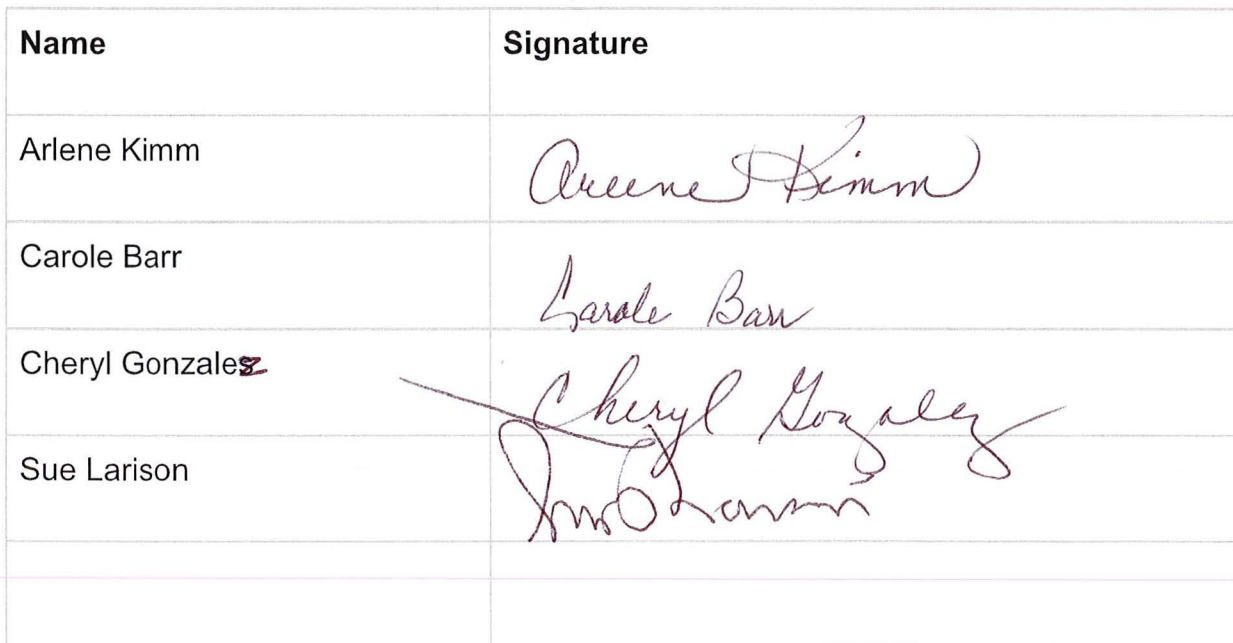 Name Signature
Arlene Kimm Arleene Kimm
Carole Barr Carole Barr
Cheryl Gonzalez Cheryl Gonzalez
Sue Larison